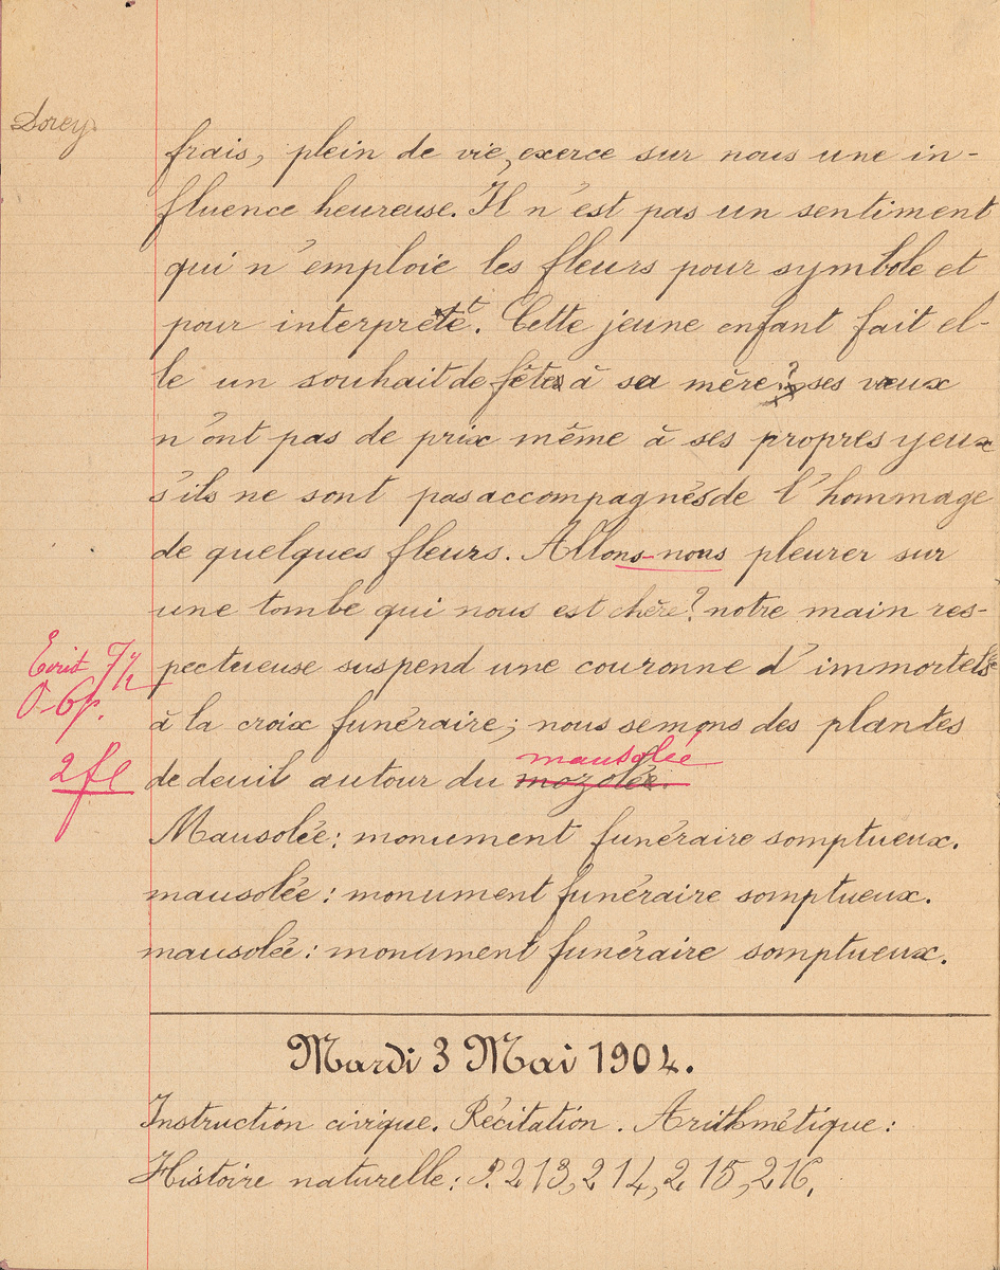 Dorey
frais, plein de vie, exerce sur nous une in-
fluence heureuse. Il n'est pas un sentiment
qui n'emploie les fleurs pour symbole et
pour interprète. Cette jeune enfant fait el-
le un souhait de fête à sa mère? ses vœux
n'ont pas de prix même à ses propres yeux
s'ils ne sont pas accompagnés de l'hommage
de quelques fleurs. Allons-nous pleurer sur
une tombe qui nous est chère? notre main res-
Ecrit 7 1/2
pectueuse suspend une couronne d'immortels
O-6f.
à la croix funéraire; nous semons des plantes
mausolée
2fl
de deuil autour du mozolée.
Mausolée: monument funéraire somptueux.
mausolée: monument funéraire somptueux.
mausolée: monument funéraire somptueux.
Mardi 3 Mai 1904.
Instruction civique. Récitation. Arithmétique:
Histoire naturelle: P. 213, 214, 215, 216.